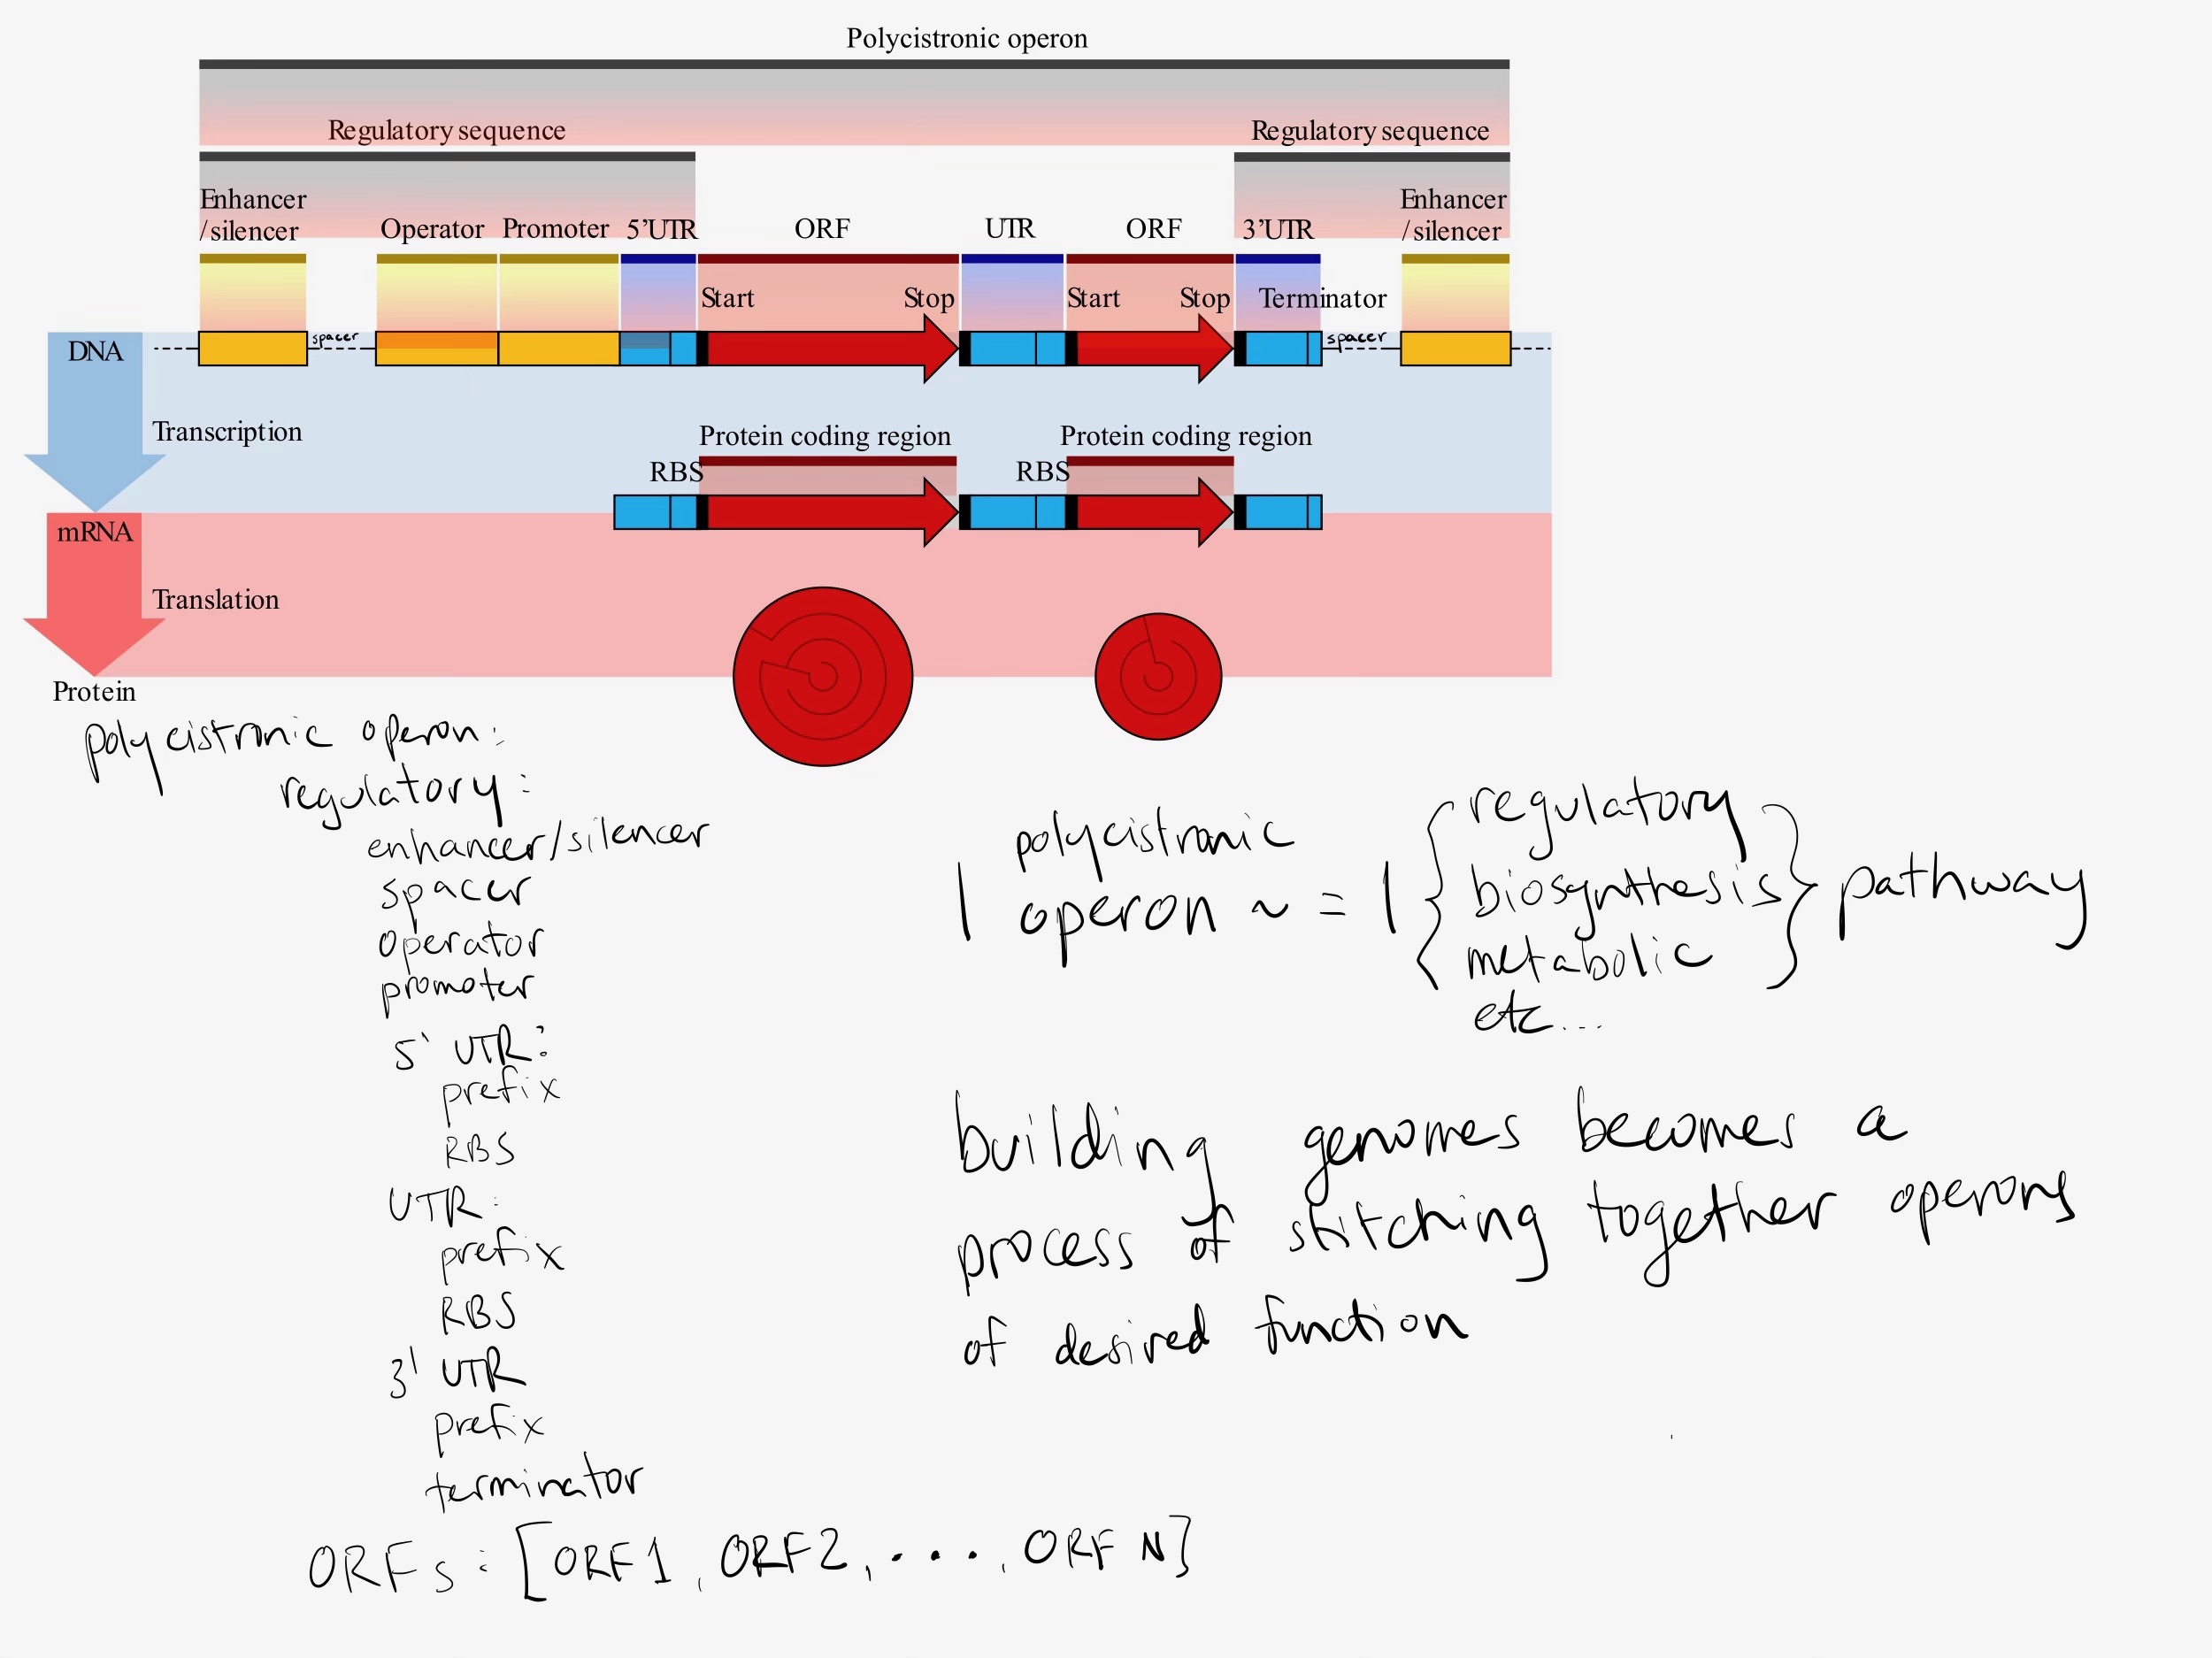 Polycistronic operon
Regulatory sequence
Regulatory sequence
Enhancer
/silencer
Operator
Promoter
5’UTR
ORF
UTR
ORF
3’UTR
Enhancer
/silencer
Start
Stop
Start
Stop
Terminator
DNA
spacer
spacer
Transcription
Protein coding region
Protein coding region
RBS
RBS
mRNA
Translation
Protein
polycistronic operon:
regulatory:
enhancer/silencer
spacer
operator
promoter
5' UTR:
prefix
RBS
UTR:
prefix
RBS
3' UTR
prefix
terminator
ORFs: [ORF1, ORF2, ...., ORF N]
polycistronic
1 operon ~ = 1 { regulatory
biosynthesis } pathway
metabolic
etc...
building genomes becomes a
process of stitching together operons
of desired function